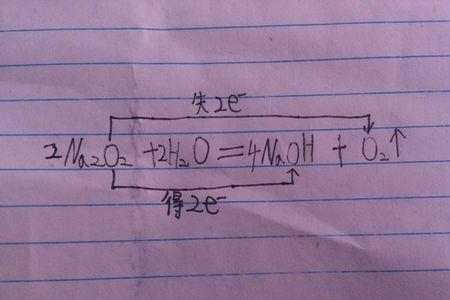 失2e⁻
2Na₂O₂ +2H₂O=4NaOH + O₂↑
得2e⁻